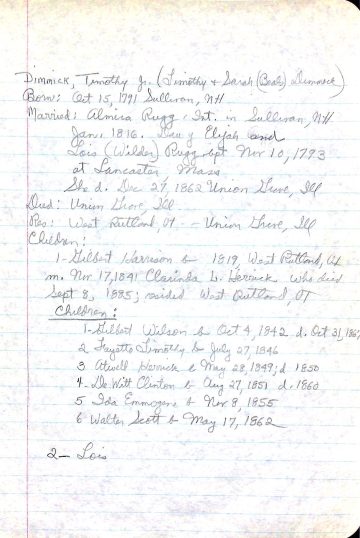 Dimmick, Timothy Jr. (Timothy & Sarah (Beals) Dimmick)
Born: Oct 15, 1791 Sullivan, NH
Married: Almira Rugg: Int. in Sullivan, NH
Jan. 1816. Dau of Elijah and
Lois (Wilder) Rugg bpt Nov 10, 1793
at Lancaster, Mass
She d. Dec 27, 1862 Union Grove, Ill
Died: Union Grove, Ill
Res: West Rutland, Vt - Union Grove, Ill
Children:
1- Gilbert Harrison b 1819, West Rutland, Vt
m. Nov 17, 1841 Clarinda L. Herrick who died
Sept 8, 1885; resided West Rutland, VT
Children:
1- Gilbert Wilson b Oct 4, 1842 d. Oct 31,
2 Fayette Timothy b July 27, 1846
3 Atwell Herrick b May 28, 1849; d 1850
4- DeWitt Clinton b Aug 27, 1851 d. 1860
5 Ida Emmogene b Nov 8, 1855
6 Walter Scott b May 17, 1862
2- Lois